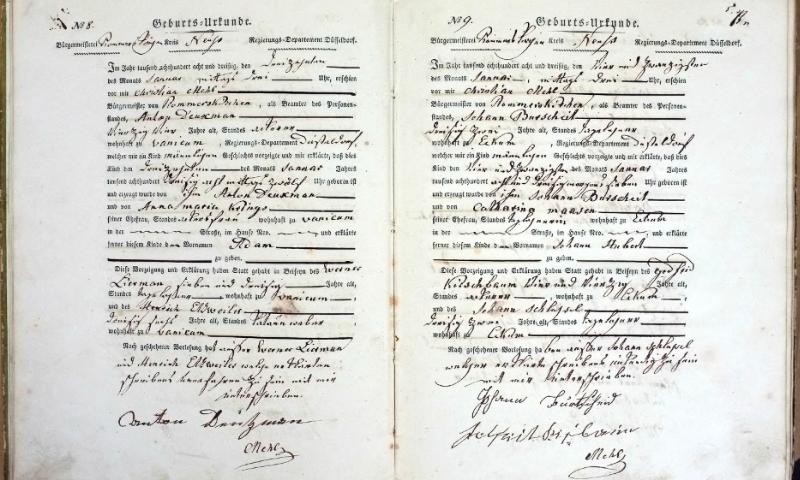 No 8. Geburts-Urkunde.
Bürgermeisterei Rommerskirchen Kreis Neuss Regierungs-Departement Düsseldorf.
Im Jahr tausend achthundert acht und dreißig, den dreizehnten
des Monats Januar mittags drei Uhr, erschien
vor mir Christian Mehl
Bürgermeister von Rommerskirchen, als Beamter des Personen-
standes, Anton Deuxman
vierzig vier Jahre alt, Standes Ackerer
wohnhaft zu Vanicum, Regierungs-Departement Düsseldorf,
welcher mir ein Kind männlichen Geschlechts vorzeigte und mir erklärte, daß dies
Kind den dreizehnten des Monats Januar Jahres
tausend achthundert dreißig acht mittags zwölf Uhr geboren ist
und erzeugt wurde von ihm Anton Deuxman
und von Anna Maria
seiner Ehefrau, Standes wohnhaft zu Vanicum
in der Straße, im Hause Nro. und erklärte
ferner diesem Kinde den Vornamen Adam
zu geben.
Diese Vorzeigung und Erklärung haben Statt gehabt in Beiseyn des Werner
Lierman sieben und dreißig Jahre alt,
Standes Tagelöhner wohnhaft zu Vanicum,
und des Henrich Eldweiler
dreißig sechs Jahre alt, Standes
wohnhaft zu Vanicum
Nach geschehener Vorlesung hat außer Werner Lierman
und Henrich Eldweiler welche erklärten
schreibens unerfahren zu sein mit mir
unterschrieben.
Anton Deuxman
Mehl
No 9. Geburts-Urkunde.
Bürgermeisterei Rommerskirchen Kreis Neuss Regierungs-Departement Düsseldorf.
Im Jahr tausend achthundert acht und dreißig, den vier und zwanzigsten
des Monats Januar, mittags drei Uhr, erschien
vor mir Christian Mehl
Bürgermeister von Rommerskirchen, als Beamter des Personen-
standes, Johann Burscheit
dreißig zwei Jahre alt, Standes Tagelöhner
wohnhaft zu Eckum, Regierungs-Departement Düsseldorf
welcher mir ein Kind männlichen Geschlechts vorzeigte und mir erklärte, daß dies
Kind den vier und zwanzigsten des Monats Januar Jahres
tausend achthundert acht und dreißig morgens sieben Uhr geboren ist
und erzeugt wurde von ihm Johann Burscheit
und von Catharina Maasen
seiner Ehefrau, Standes Tagelöhnerin wohnhaft zu Eckum
in der Straße, im Hause Nro. und erklärte
ferner diesem Kinde den Vornamen Johann Hubert
zu geben.
Diese Vorzeigung und Erklärung haben Statt gehabt in Beiseyn des Gottfried
Kirschbaum vier und vierzig Jahre alt,
Standes Ackerer, wohnhaft zu Eckum,
und des Johann Schlüssel
dreißig zwei Jahre alt, Standes Tagelöhner
wohnhaft zu Eckum
Nach geschehener Vorlesung haben außer Johann Schlüssel
welcher erklärte schreibens unkundig zu sein
mit mir unterschrieben.
Johann
Mehl